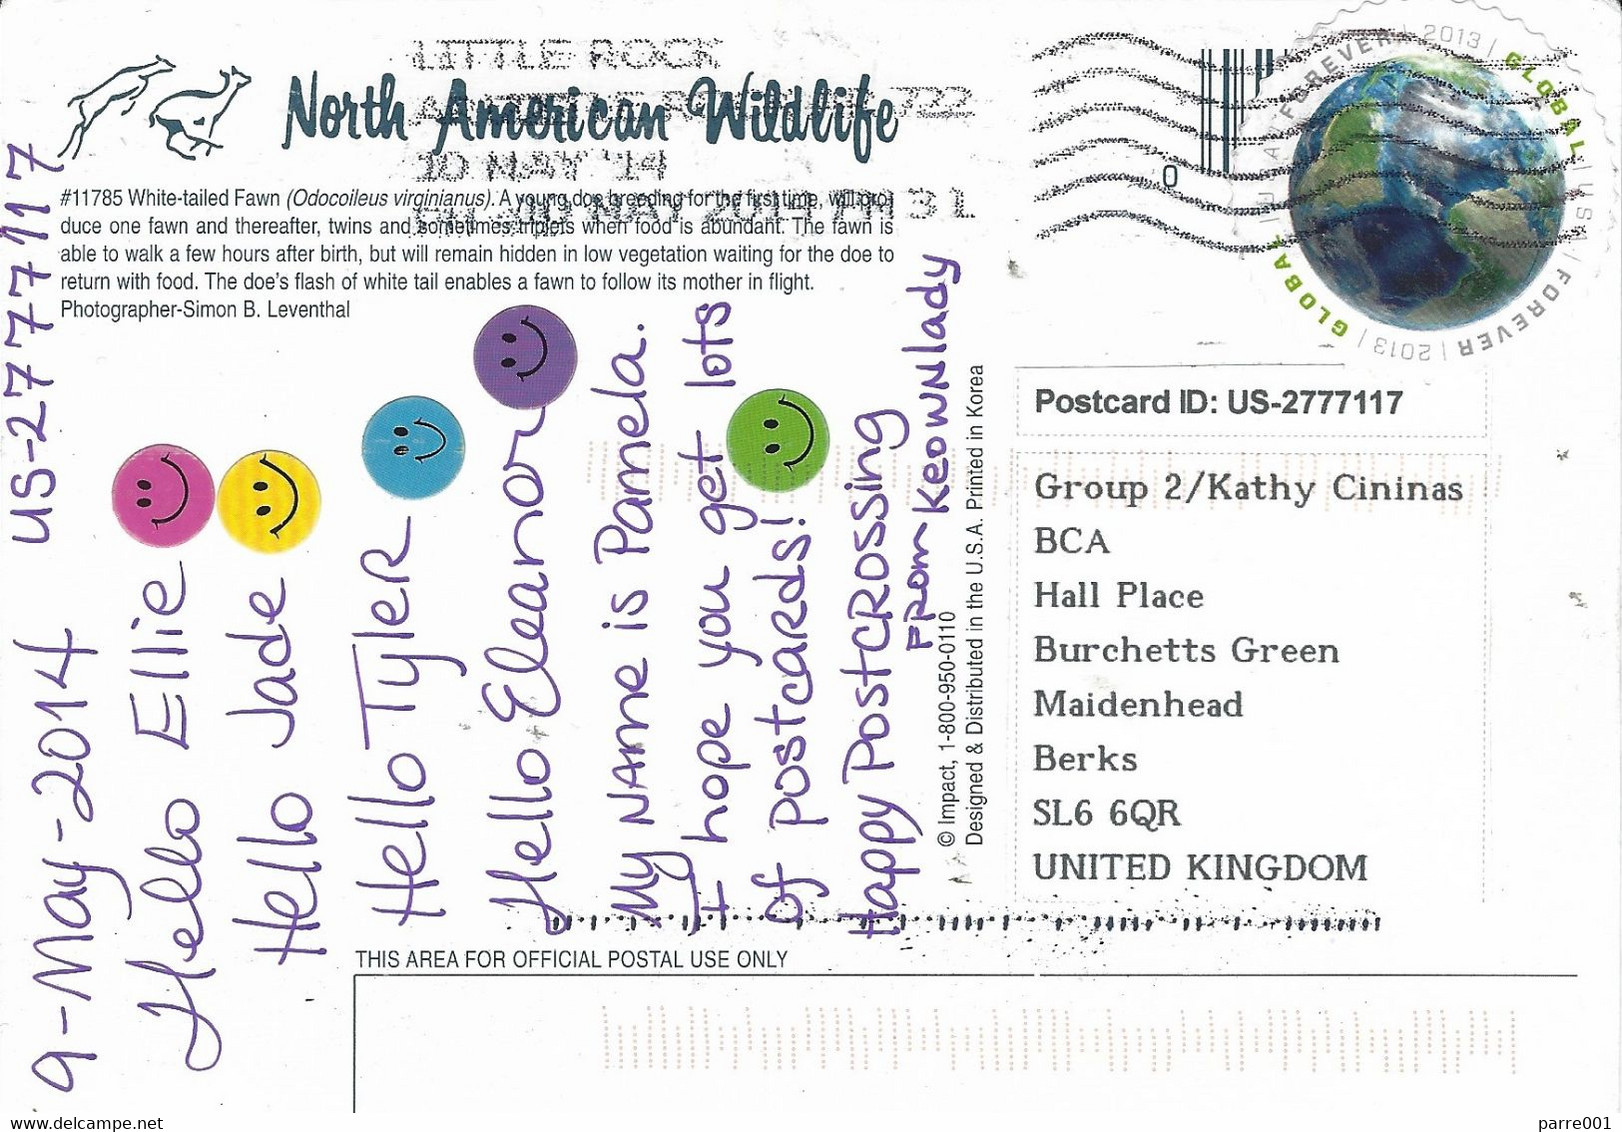 LITTLE ROCK
North American Wildlife
722
10 MAY '14
10 MAY 2014 PM 3 L
#11785 White-tailed Fawn (Odocoileus virginianus). A young doe breeding for the first time, will pro-
duce one fawn and thereafter, twins and sometimes triplets when food is abundant. The fawn is
able to walk a few hours after birth, but will remain hidden in low vegetation waiting for the doe to
return with food. The doe's flash of white tail enables a fawn to follow its mother in flight.
Photographer-Simon B. Leventhal
US-2777117
9-May-2014
Hello Ellie
Hello Jade
Hello Tyler
Hello Eleanor
My name is Pamela.
I hope you get lots
of postcards!
Happy Postcrossing
From Keownlady
© Impact, 1-800-950-0110
Designed & Distributed in the U.S.A. Printed in Korea
THIS AREA FOR OFFICIAL POSTAL USE ONLY
0
FOREVER | 2013 | GLOBAL | USA | FOREVER | 2013 | GLOBAL | USA
Postcard ID: US-2777117
Group 2/Kathy Cininas
BCA
Hall Place
Burchetts Green
Maidenhead
Berks
SL6 6QR
UNITED KINGDOM
www.delcampe.net
parre001